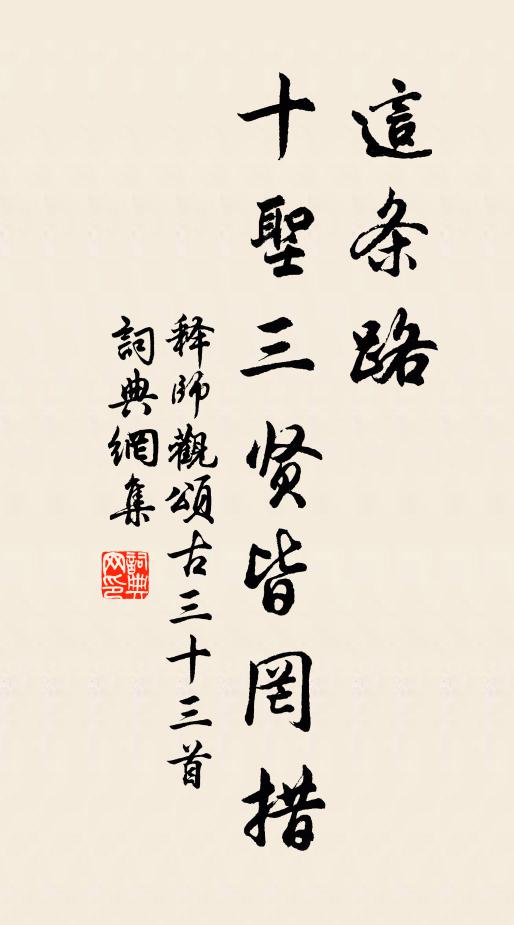 這条路
十聖三贤皆罔措
释師觀頌古三十三首
詞典網集
詞典网印